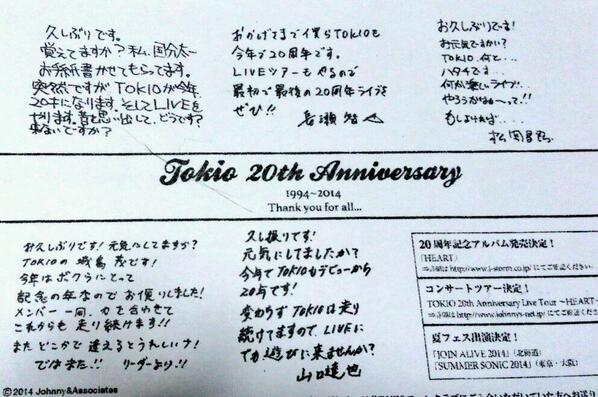 久しぶりです。
覚えてますか？私、国分太一
お手紙書かせてもらってます。
突然ですがTOKIOが今年、
20才になります。そしてLIVEを
やります。昔を思い出して、どうです？
来ないですか？
おかげさまで僕らTOKIOも
今年で20周年です。
LIVEツアーもやるので
最初で最後の20周年ライブを
ぜひ!!
長瀬智也
お久しぶりです!
お元気ですかい？
TOKIO、何と、、、
ハタチです、、、
何か楽しいライブ、、、
やろうかなぁ〜って、、!!
もしよければ、、、、
松岡昌宏
Tokio 20th Anniversary
1994~2014
Thank you for all...
お久しぶりです！元気にしてますか？
TOKIOの城島茂です！
今年はボクらにとって
記念の年なのでお便りしました！
メンバー一同、力を合わせて
これからも走り続けます!!
またどこかで逢えるとうれしいナ！
ではまた!!　リーダーより!!
久し振りです！
元気にしてましたか？
今年でTOKIOもデビューから
20才です！
変わらずTOKIOは走り
続けてますので、LIVEに
でも遊びに来ませんか？
山口達也
20周年記念アルバム発売決定！
「HEART」
⇒詳細はhttp://www.j-storm.co.jp/にてご確認ください。
コンサートツアー決定！
TOKIO 20th Anniversary Live Tour ~HEART~
⇒詳細はhttp://www.johnnys-net.jp/にてご確認くだ
夏フェス出演決定！
「JOIN ALIVE 2014」（北海道）
「SUMMER SONIC 2014」（東京・大阪）
©2014 Johnny&Associates